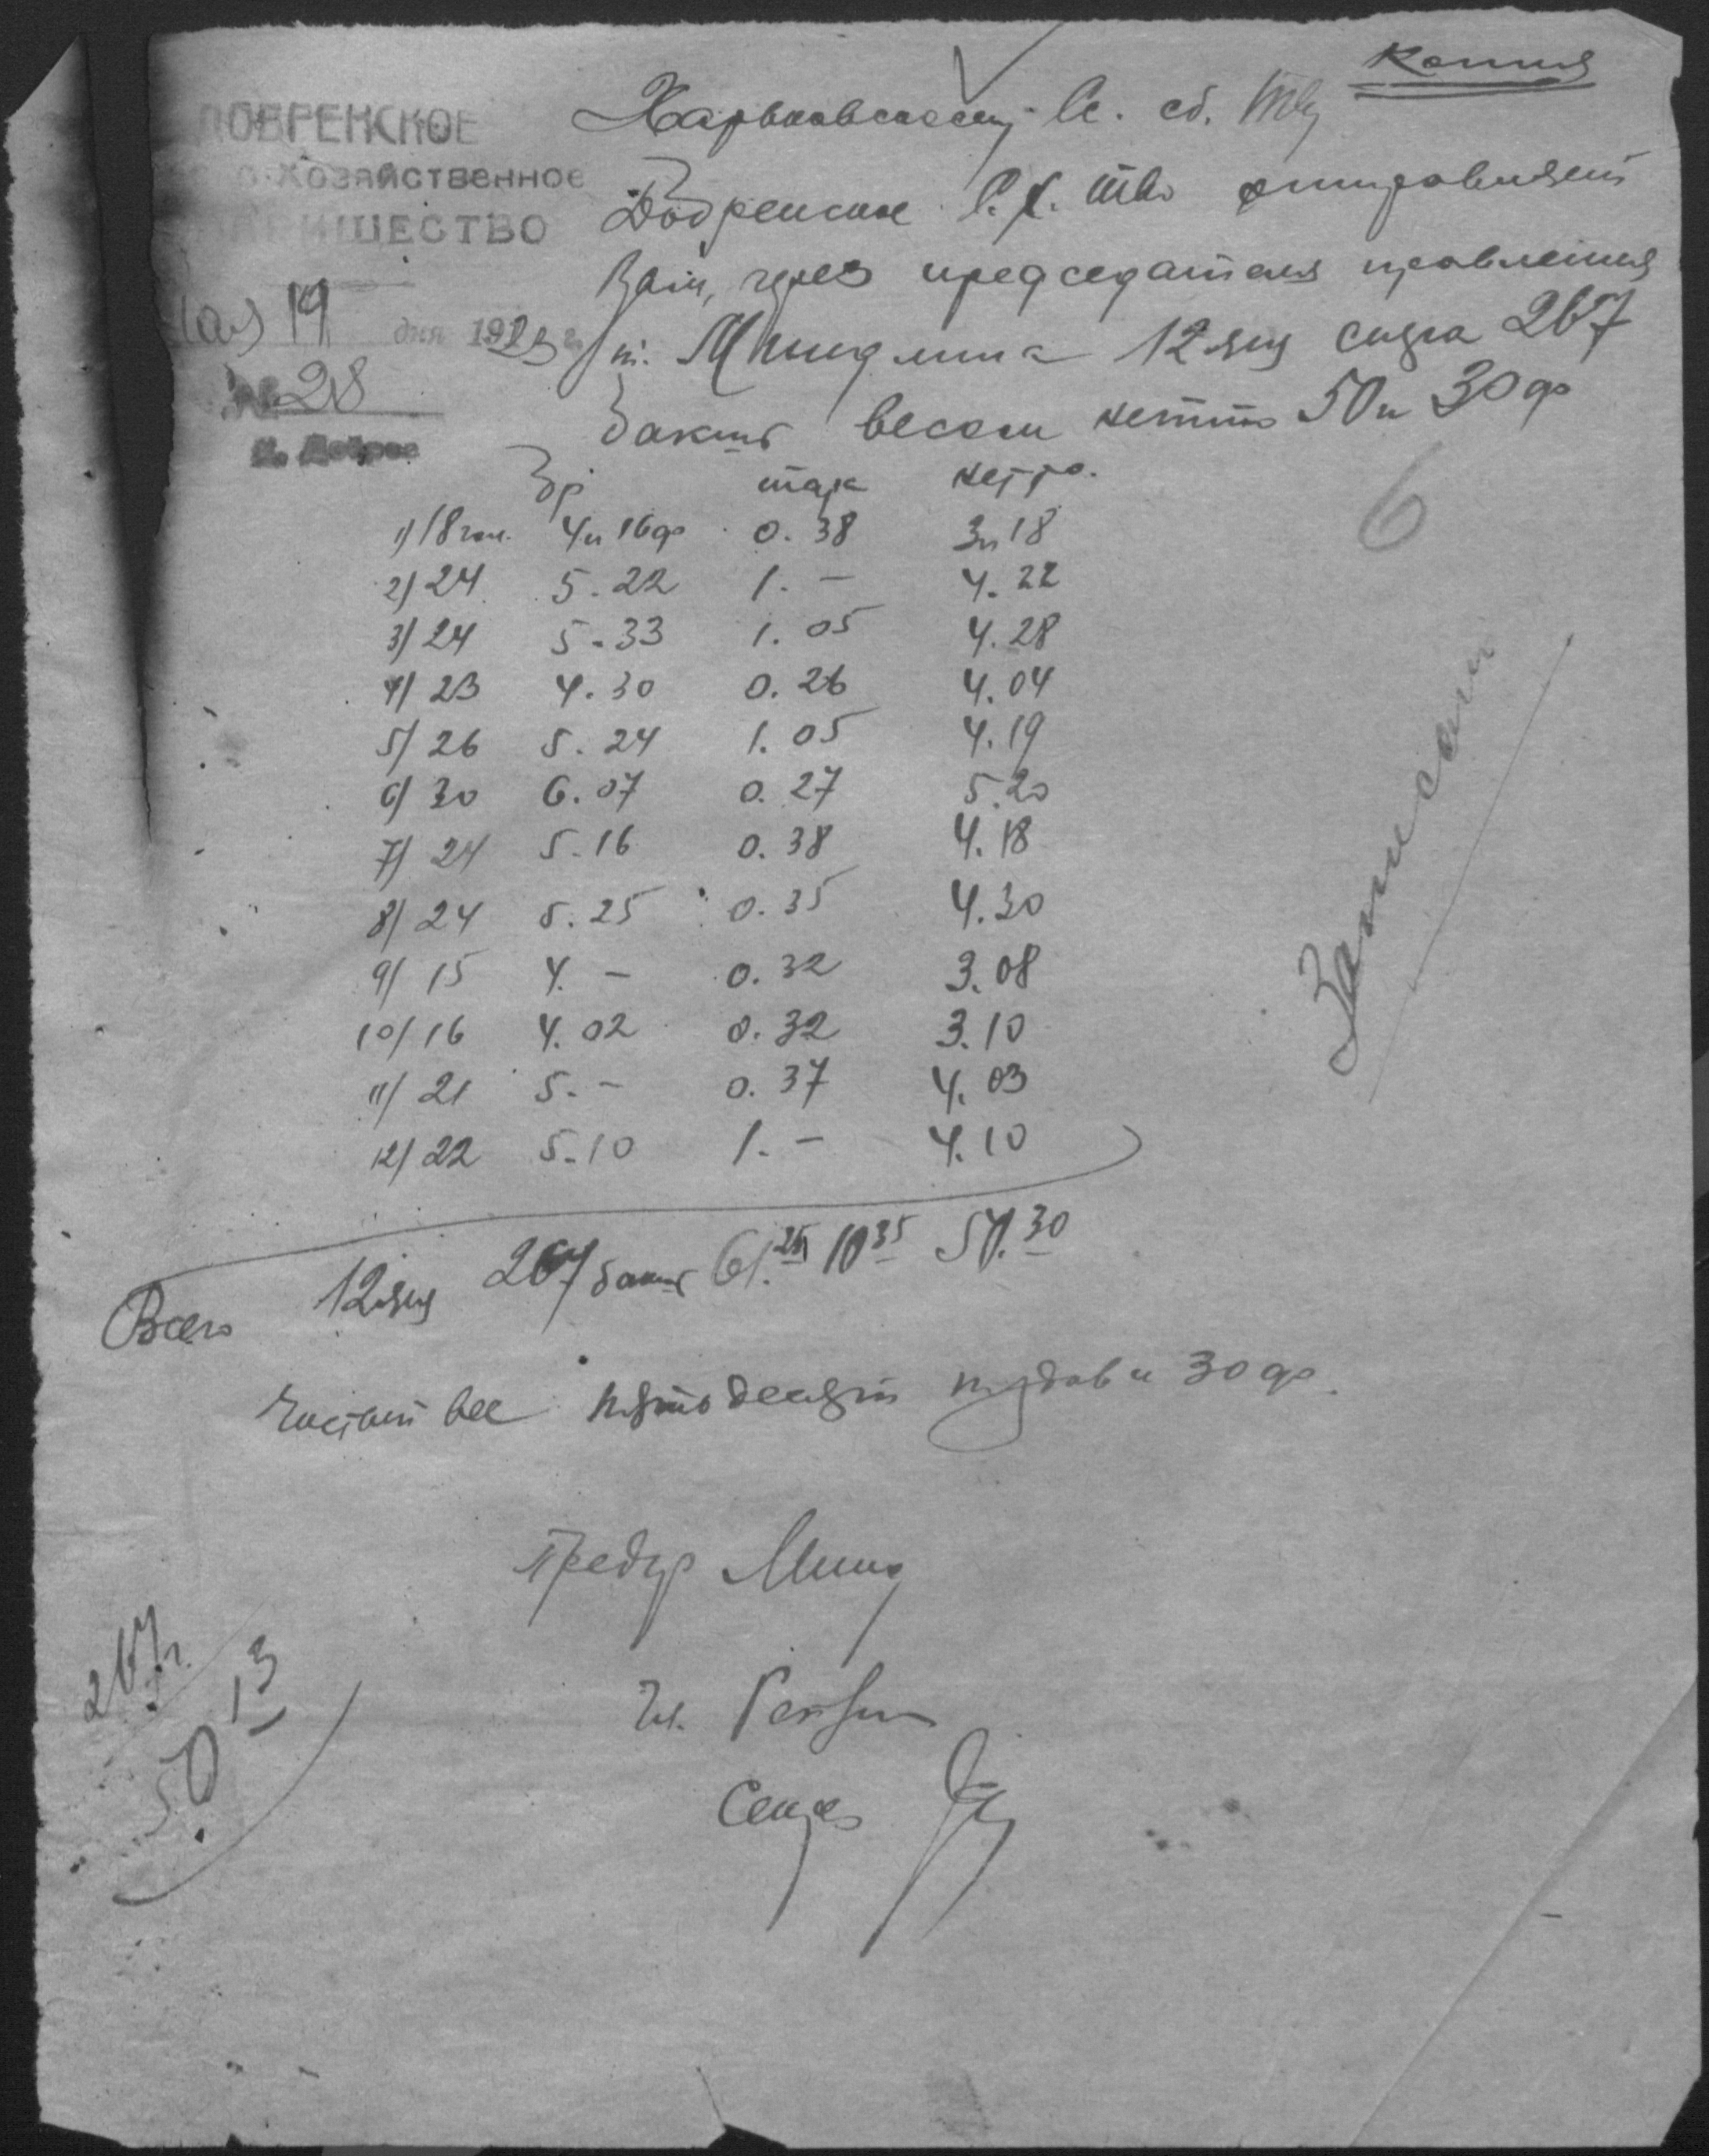 Копия
Харьковскому С. об. Тву
ДОБРЕНСКОЕ
Хозяйственное
ИЩЕСТВО
Мая 19 дня 1923 г.
№ 28
к. Доброе
Добренское С. Х. Тво отправляет
Вам, через председателя правления
т. 12 ящ сыра 267
бакшт весом нетто 50 п 30 ф
6
Бр тара нетто.
1) 18 гол. 4 п 16 ф 0.38 3 п 18
2) 24 5.22 1.- 4.22
3) 24 5.33 1.05 4.28
4) 23 4.30 0.26 4.04
5) 26 5.24 1.05 4.19
6) 30 6.07 0.27 5.20
7) 24 5.16 0.38 4.18
8) 24 5.25 0.35 4.30
9) 15 4.- 0.32 3.08
10) 16 4.02 0.32 3.10
11) 21 5.- 0.37 4.03
12) 22 5.10 1.- 4.10
Всего 12 ящ 267 бакшт 61.25 10 35 50.30
Чистый вес пятьдесят пудов и 30 ф.
Записан
Предпр
Чл.
Секрет
267 г.
50 13